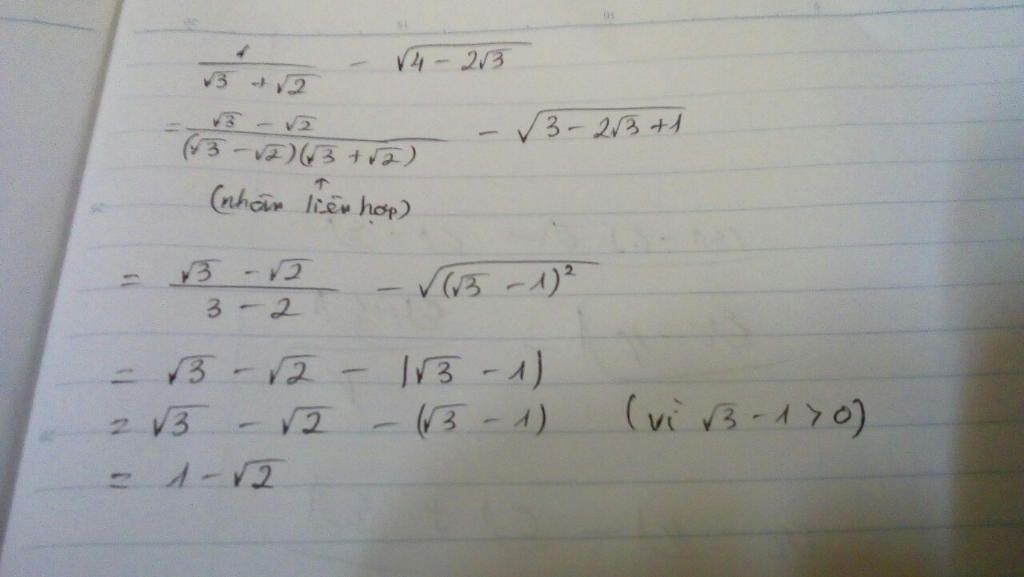 1/(√3 + √2) - √(4 - 2√3)
= (√3 - √2)/((√3 - √2)(√3 + √2)) - √(3 - 2√3 + 1)
↑
(nhân liên hợp)
= (√3 - √2)/(3 - 2) - √((√3 - 1)²)
= √3 - √2 - |√3 - 1|
= √3 - √2 - (√3 - 1) (vì √3 - 1 > 0)
= 1 - √2